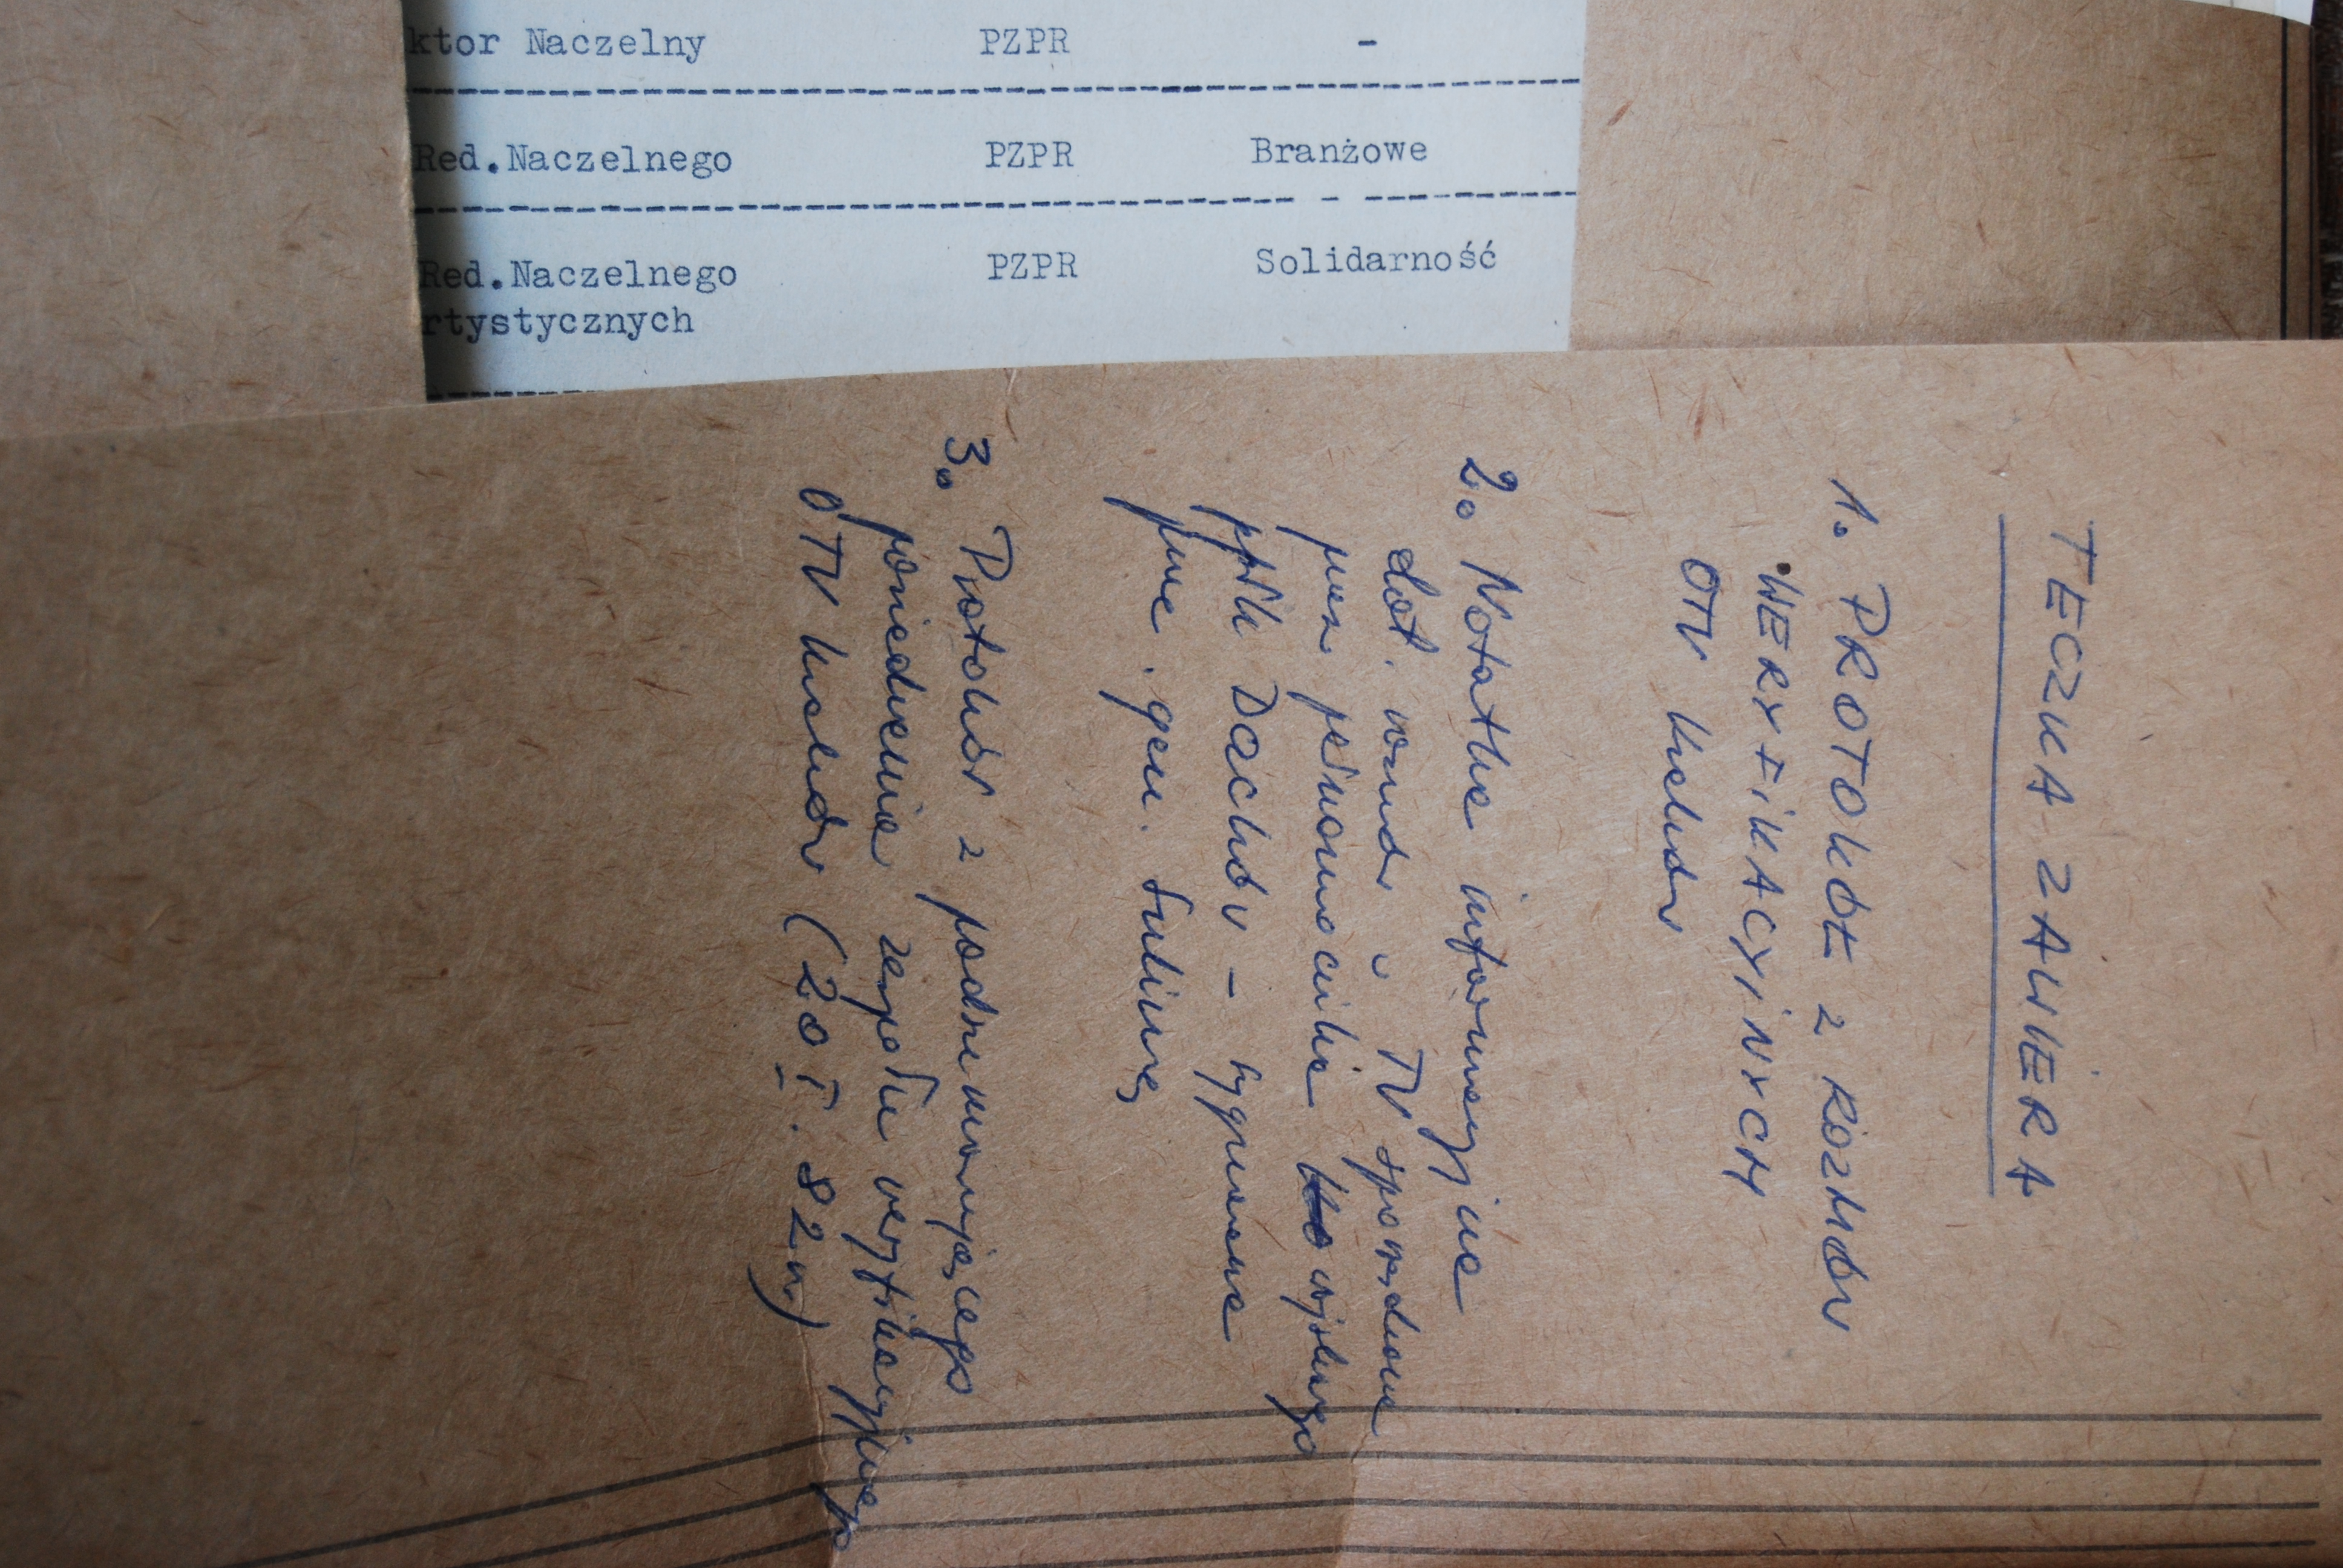 ktor Naczelny PZPR -
Red.Naczelnego PZPR Branżowe
Red.Naczelnego PZPR Solidarność
rtystycznych
TECZKA ZAWIERA
1. PROTOKÓŁ z ROZMÓW
WERYFIKACYJNYCH
OTV Kraków
2. Notatka informacyjna
dot. i TV sporządzona
przez pełnomocnika wojskowego
ppłk - wypisana
gen.
3. Protokół z podsumowującego
posiedzenia zespołu weryfikacyjnego
OTV Kraków (20 I. 82 r)